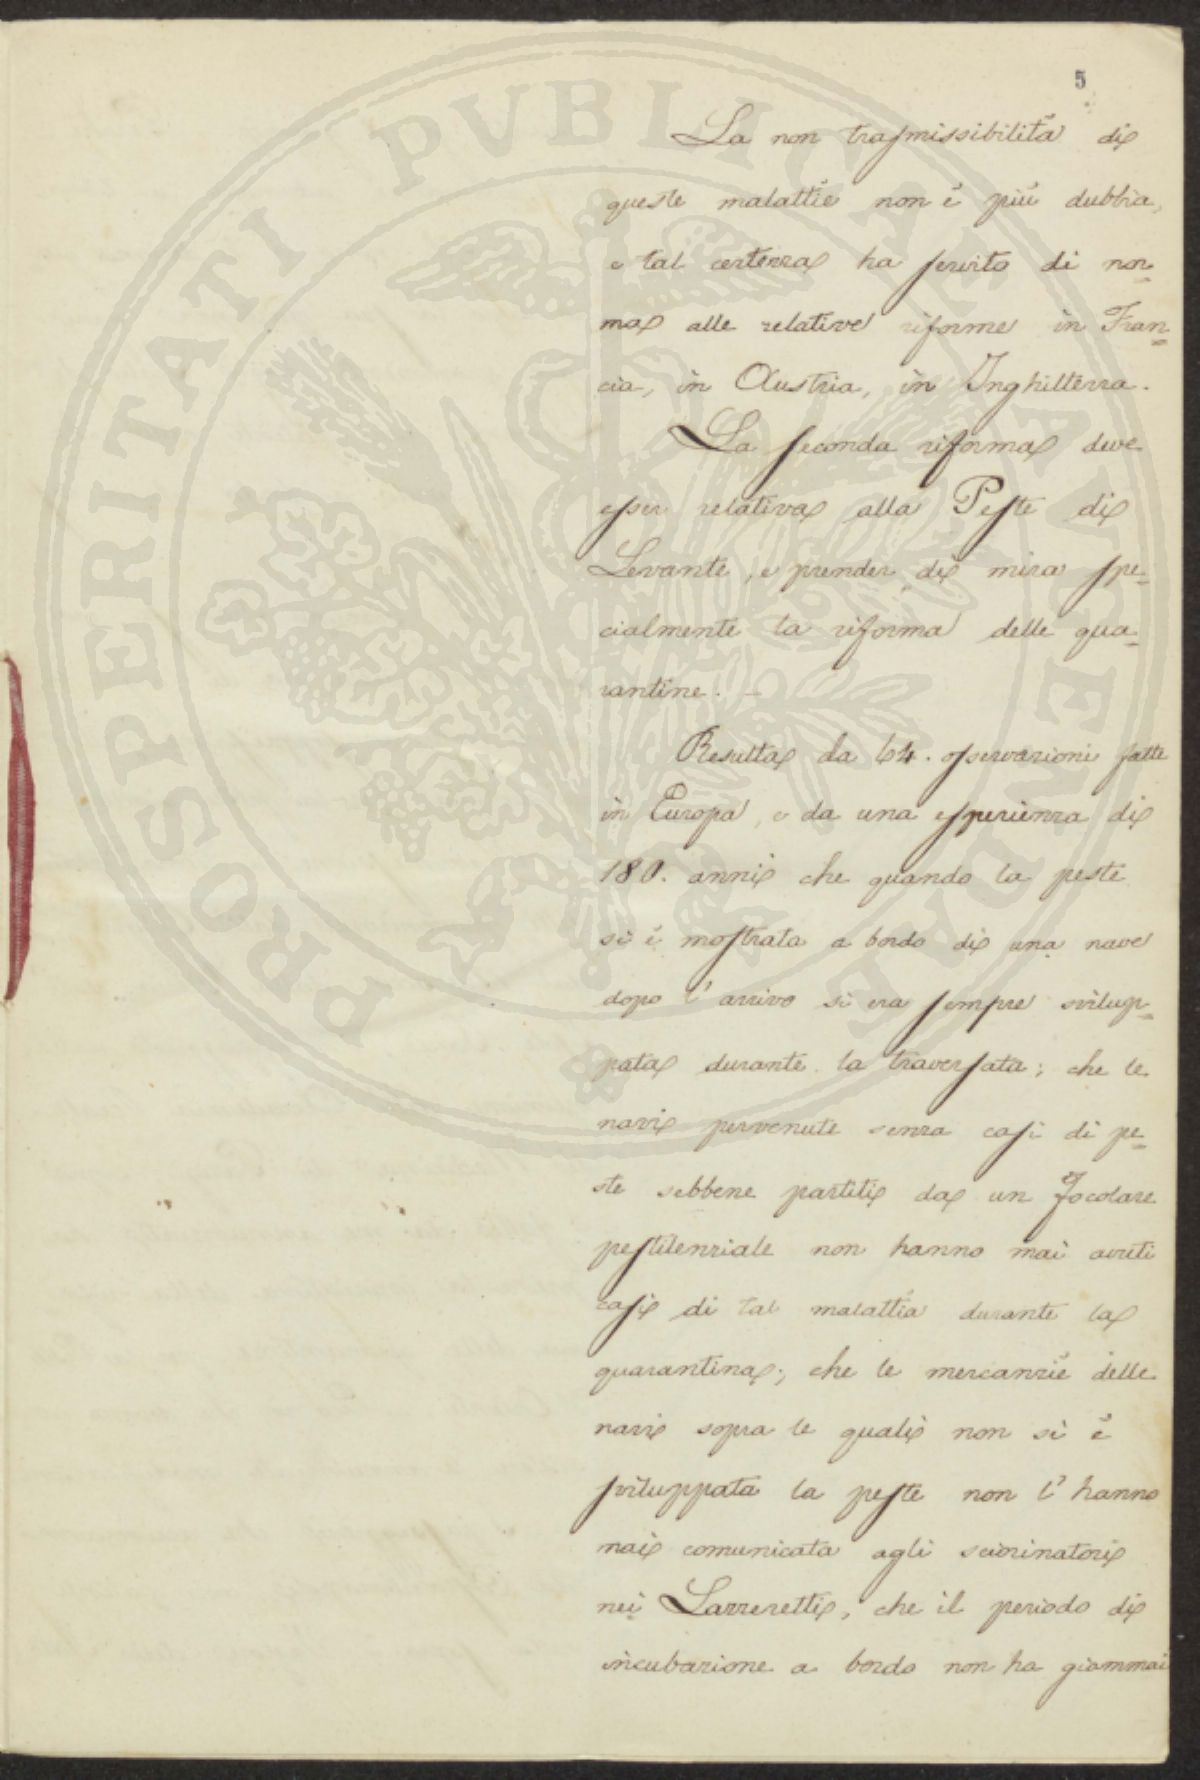 5
La non trasmissibilità di
queste malattie non è più dubbia,
e tal certezza ha servito di nor=
ma alle relative riforme in Fran=
cia, in Austria, in Inghilterra.
La seconda riforma deve
esser relativa alla Peste di
Levante, e prender di mira spe=
cialmente la riforma delle qua=
rantine. –
Resulta da 64. osservazioni fatte
in Europa, e da una esperienza di
180. anni che quando la peste
si è mostrata a bordo di una nave
dopo l'arrivo si era sempre svilup=
pata durante la traversata; che le
navi pervenute senza casi di pe=
ste sebbene partiti da un focolare
pestilenziale non hanno mai avuti
casi di tal malattia durante la
quarantina; che le mercanzie delle
navi sopra le quali non si è
sviluppata la peste non l'hanno
mai comunicata agli sciorinatori
nei Lazzeretti, che il periodo di
incubazione a bordo non ha giammai
PROSPERITATI PVBLICAE AVGENDAE